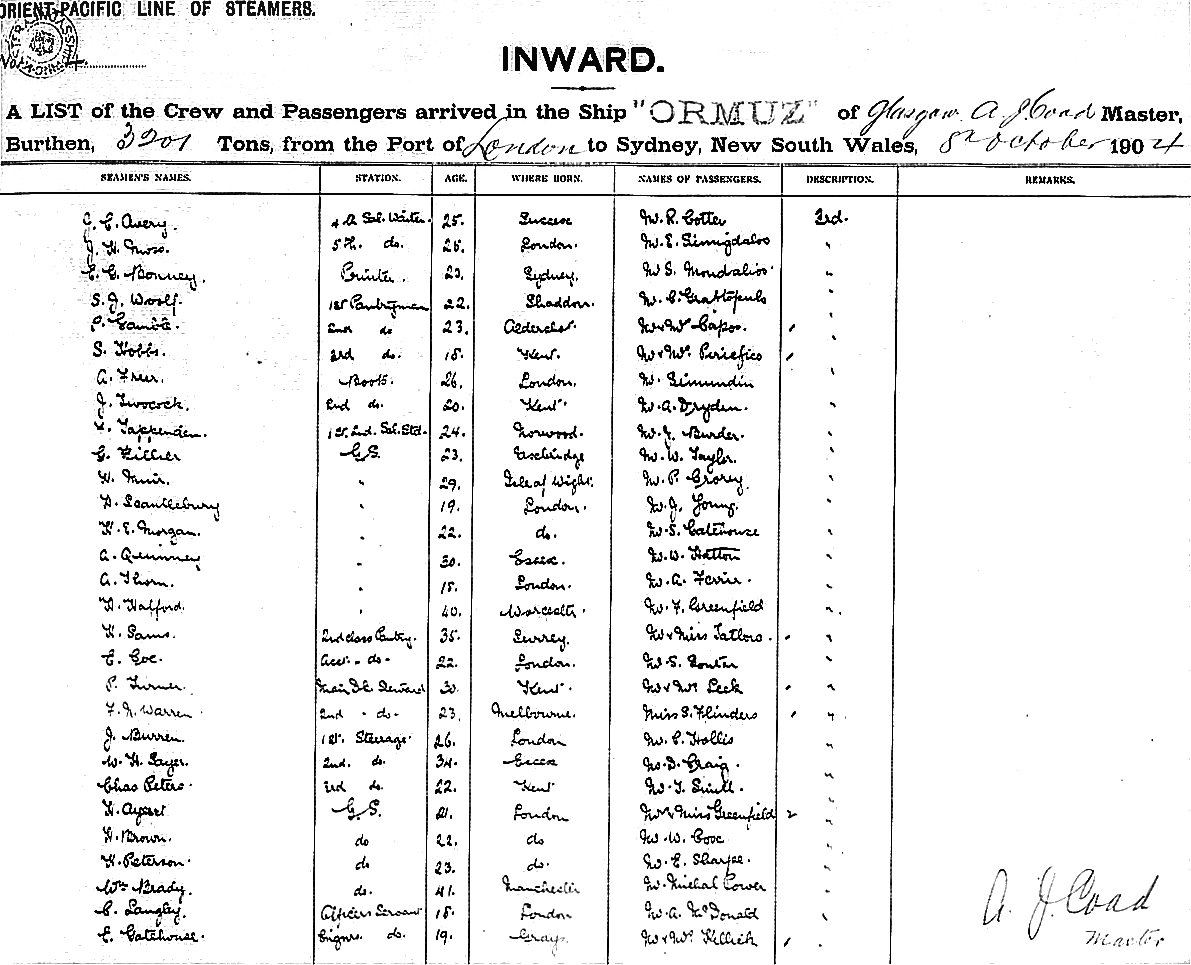 ORIENT-PACIFIC LINE OF STEAMERS.
INWARD.
A LIST of the Crew and Passengers arrived in the Ship "ORMUZ" of Glasgow A. J. Coad Master,
Burthen, 3201 Tons, from the Port of London to Sydney, New South Wales, 8th October 1904
SEAMEN'S NAMES. STATION. AGE. WHERE BORN. NAMES OF PASSENGERS. DESCRIPTION. REMARKS.
Avery. 25. Sussex Mr. R. Cotter 3rd.
J. H. Moss. 5th. do. London. Mr. E. "
Bonney. Printer. 23. Sydney. Mr S. "
S. J. Woolf. 1st Pantryman 22. Mr. C. "
Gamble. 2nd do 23. Aldershot. Mr & Mrs Capos. "
S. Hobbs. 3rd do. 18. Kent. Mr & Mrs "
A. Freer. Boots. 26. London. Mr. "
J. Twocock. 2nd do. 20. Kent. Mr. A. Dryden. "
Tappenden. 1st. 2nd. Sal. Std. 24. Norwood. Mr. J. Burder. "
G. Hillier G.S. 23. Uxbridge Mr. W. Taylor. "
Muir. " 29. Isle of Wight. Mr. P. Crorey. "
Scantlebury " 19. London. Mr. J. Young. "
H. E. Morgan. " 22. do. Mr. S. Gatehouse "
A. Quinney " 30. Essex. Mr. W. Hatton "
A. Thorn. " 18. London. Mr. A. Ferrier. "
H. Halford. " 40. Worcester. Mr. F. Greenfield "
H. Sams. 2nd class Pantry. 35. Surrey. Mr & Miss "
C. Coe. Asst. - do - 22. London. Mr. S. "
P. Turner. Steward 30. Kent. Mr & Mrs Peck "
F. N. Warren 2nd - do - 23. Melbourne. Miss S. Flinders "
J. Burren. 1st. Steerage 26. London Mr. C. Hollis "
W. H. Sayer. 2nd. do. 34. Essex D. Craig. "
Chas Peters. 3rd do. 22. Kent Mr. T. "
H. G.S. 21. London Mr & Miss Greenfield "
H. Brown. do 22. do Mr. W. "
H. Peterson. do 23. do. Mr. E. Sharpe. "
Wm Brady. do. 41. Manchester Mr. Michal "
C. Langley. Officers Servant 18. London Mr. A. McDonald "
E. Gatehouse. Engrs. do. 19. Grays. Mr & Mrs Killick "
A. J. Coad
Master